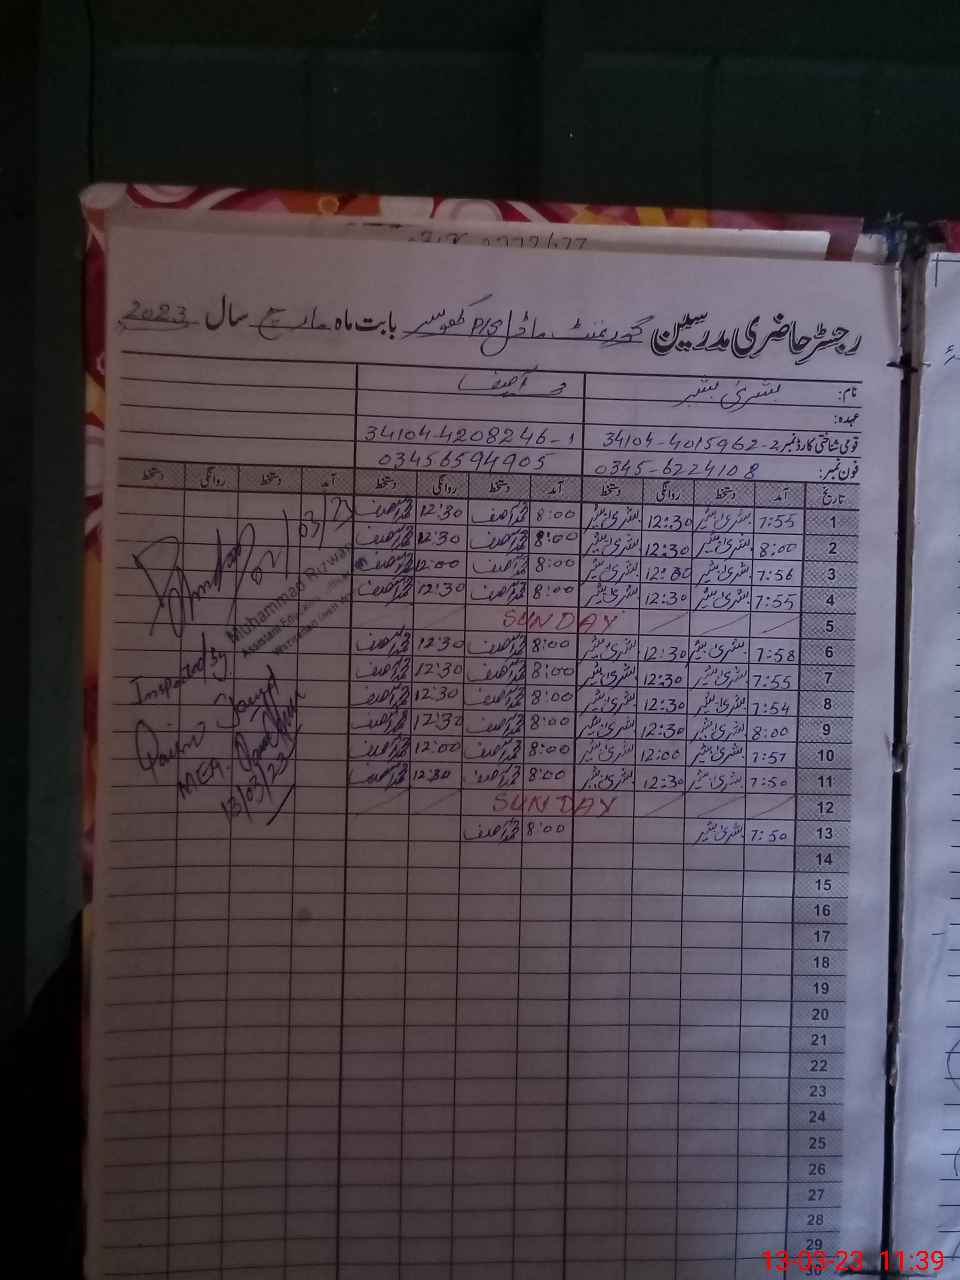 رجسٹر حاضری مدرسین گورنمنٹ ماڈل P/S بابت ماہ مارچ سال 2023
نام: بشریٰ بشیر م آصف
عہدہ:
قومی شناختی کارڈ نمبر 34104-4015962-2 34104-4208246-1
فون نمبر: 0345-6224108 03456594905
تاریخ آمد دستخط روانگی دستخط آمد دستخط روانگی دستخط آمد دستخط روانگی دستخط
1 7:55 بشریٰ بشیر 12:30 بشریٰ بشیر 8:00 محمد آصف 12:30 محمد آصف
2 8:00 بشریٰ بشیر 12:30 بشریٰ بشیر 8:00 محمد آصف 12:30 محمد آصف
3 7:56 بشریٰ بشیر 12:00 بشریٰ بشیر 8:00 محمد آصف 12:00 محمد آصف
4 7:55 بشریٰ بشیر 12:30 بشریٰ بشیر 8:00 محمد آصف 12:30 محمد آصف
5 SUNDAY
6 7:58 بشریٰ بشیر 12:30 بشریٰ بشیر 8:00 محمد آصف 12:30 محمد آصف
7 7:55 بشریٰ بشیر 12:30 بشریٰ بشیر 8:00 محمد آصف 12:30 محمد آصف
8 7:54 بشریٰ بشیر 12:30 بشریٰ بشیر 8:00 محمد آصف 12:30 محمد آصف
9 8:00 بشریٰ بشیر 12:30 بشریٰ بشیر 8:00 محمد آصف 12:30 محمد آصف
10 7:57 بشریٰ بشیر 12:00 بشریٰ بشیر 8:00 محمد آصف 12:00 محمد آصف
11 7:50 بشریٰ بشیر 12:30 بشریٰ بشیر 8:00 محمد آصف 12:30 محمد آصف
12 SUNDAY
13 7:50 بشریٰ بشیر 8:00 محمد آصف
14
15
16
17
18
19
20
21
22
23
24
25
26
27
28
29
30
Muhammad Rizwan
Inspected by
MEA.
13/03/23
13-03-23 11:39